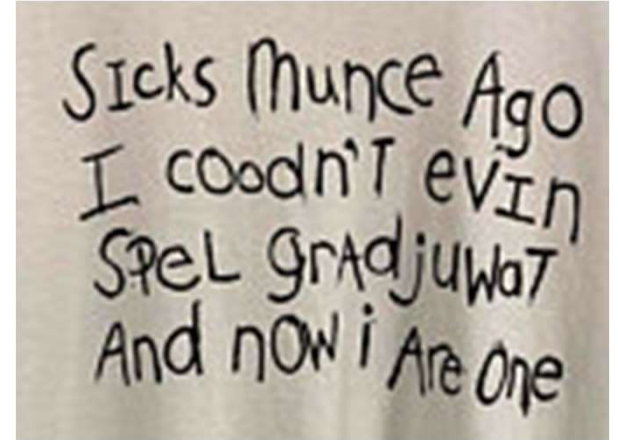 SIcks Munce Ago
I coodn'T evIn
SPeL grAdjuWaT
And nOW i Are One